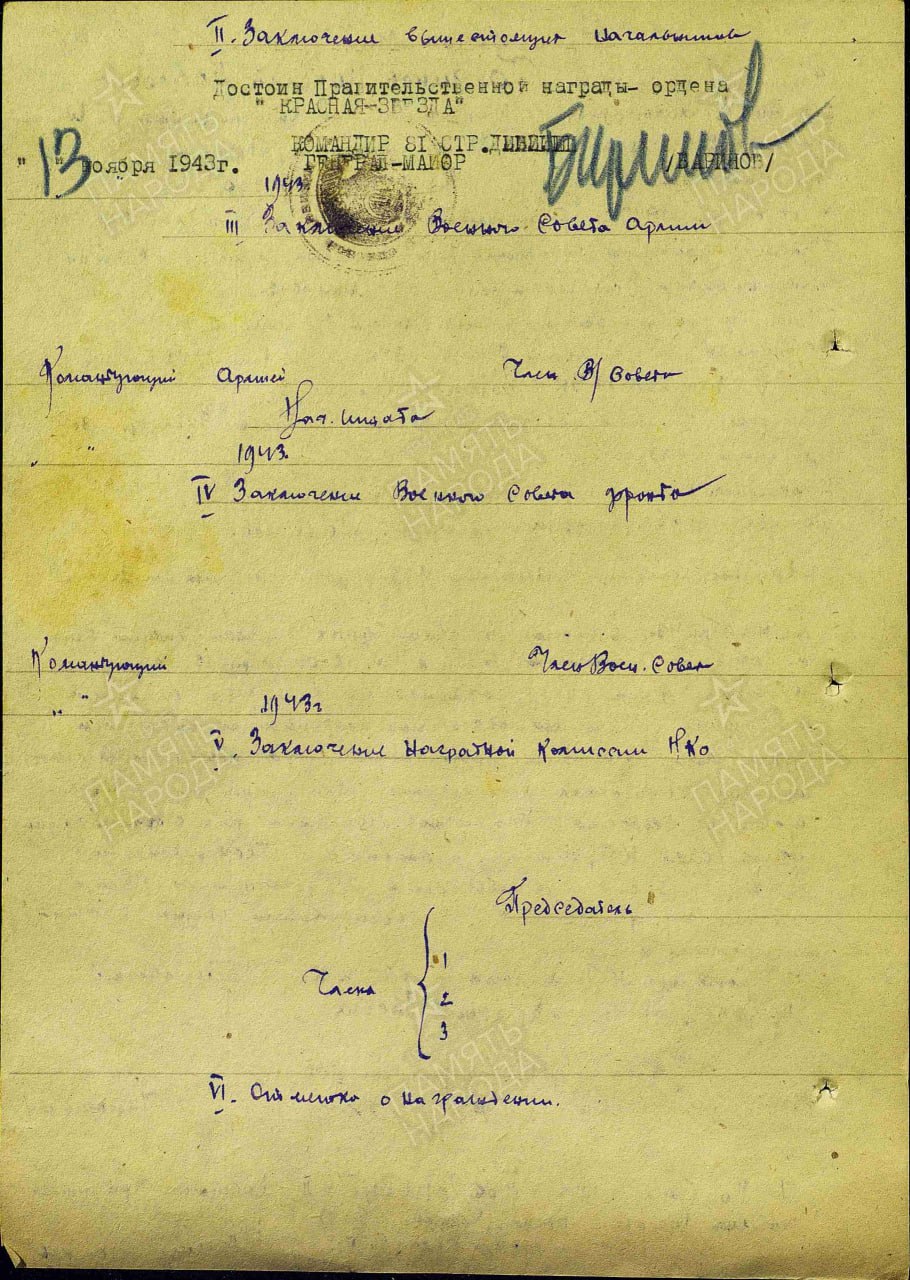 II. Заключение вышестоящих начальников
Достоин Правительственной награды- ордена
" КРАСНАЯ-ЗВЕЗДА"
КОМАНДИР 81 СТР.ДИВИЗИИ
"13" ноября 1943г. ГЕНЕРАЛ-МАИОР /БАРИНОВ/
1943
III Заключение Военного Совета Армии
Командующий Армией Член В/Совета
Нач. штаба
" " 1943.
IV Заключение Военного Совета фронта
Командующий Член Воен. Совета
" " 1943г
V. Заключение Наградной Комиссии НКО
Председатель
Члены
1
2
3
VI. Отметка о награждении.
ПАМЯТЬ НАРОДА